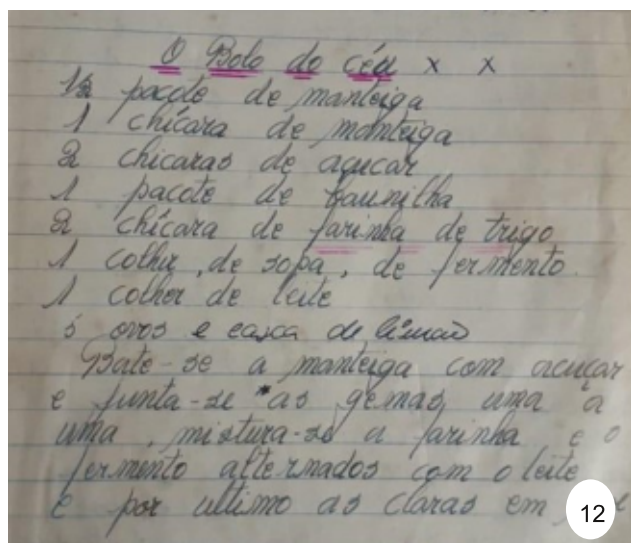 O Bolo do céu x x
1/2 pacote de manteiga
1 chícara de manteiga
2 chicaras de açucar
1 pacote de baunilha
2 chícara de farinha de trigo
1 colher, de sopa, de fermento.
1 colher de leite
5 ovos e casca de limão
Bate-se a manteiga com acuçar
e junta-se as gemas uma a
uma, mistura-se a farinha e o
fermento alternados com o leite
e por ultimo as claras em
12